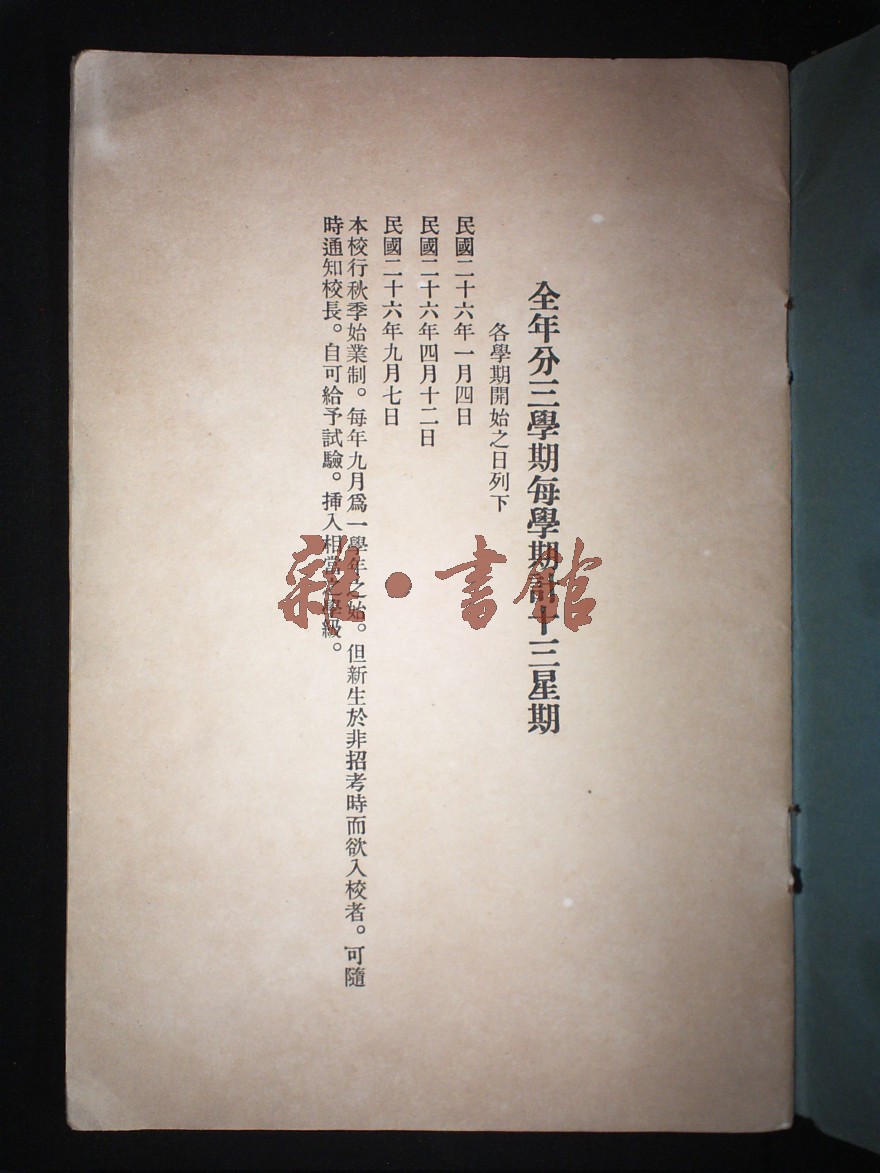 全年分三學期每學期計十三星期
各學期開始之日列下
民國二十六年一月四日
民國二十六年四月十二日
民國二十六年九月七日
本校行秋季始業制。每年九月爲一學年之始。但新生於非招考時而欲入校者。可隨
時通知校長。自可給予試驗。揷入相當之學級。
雜·書館